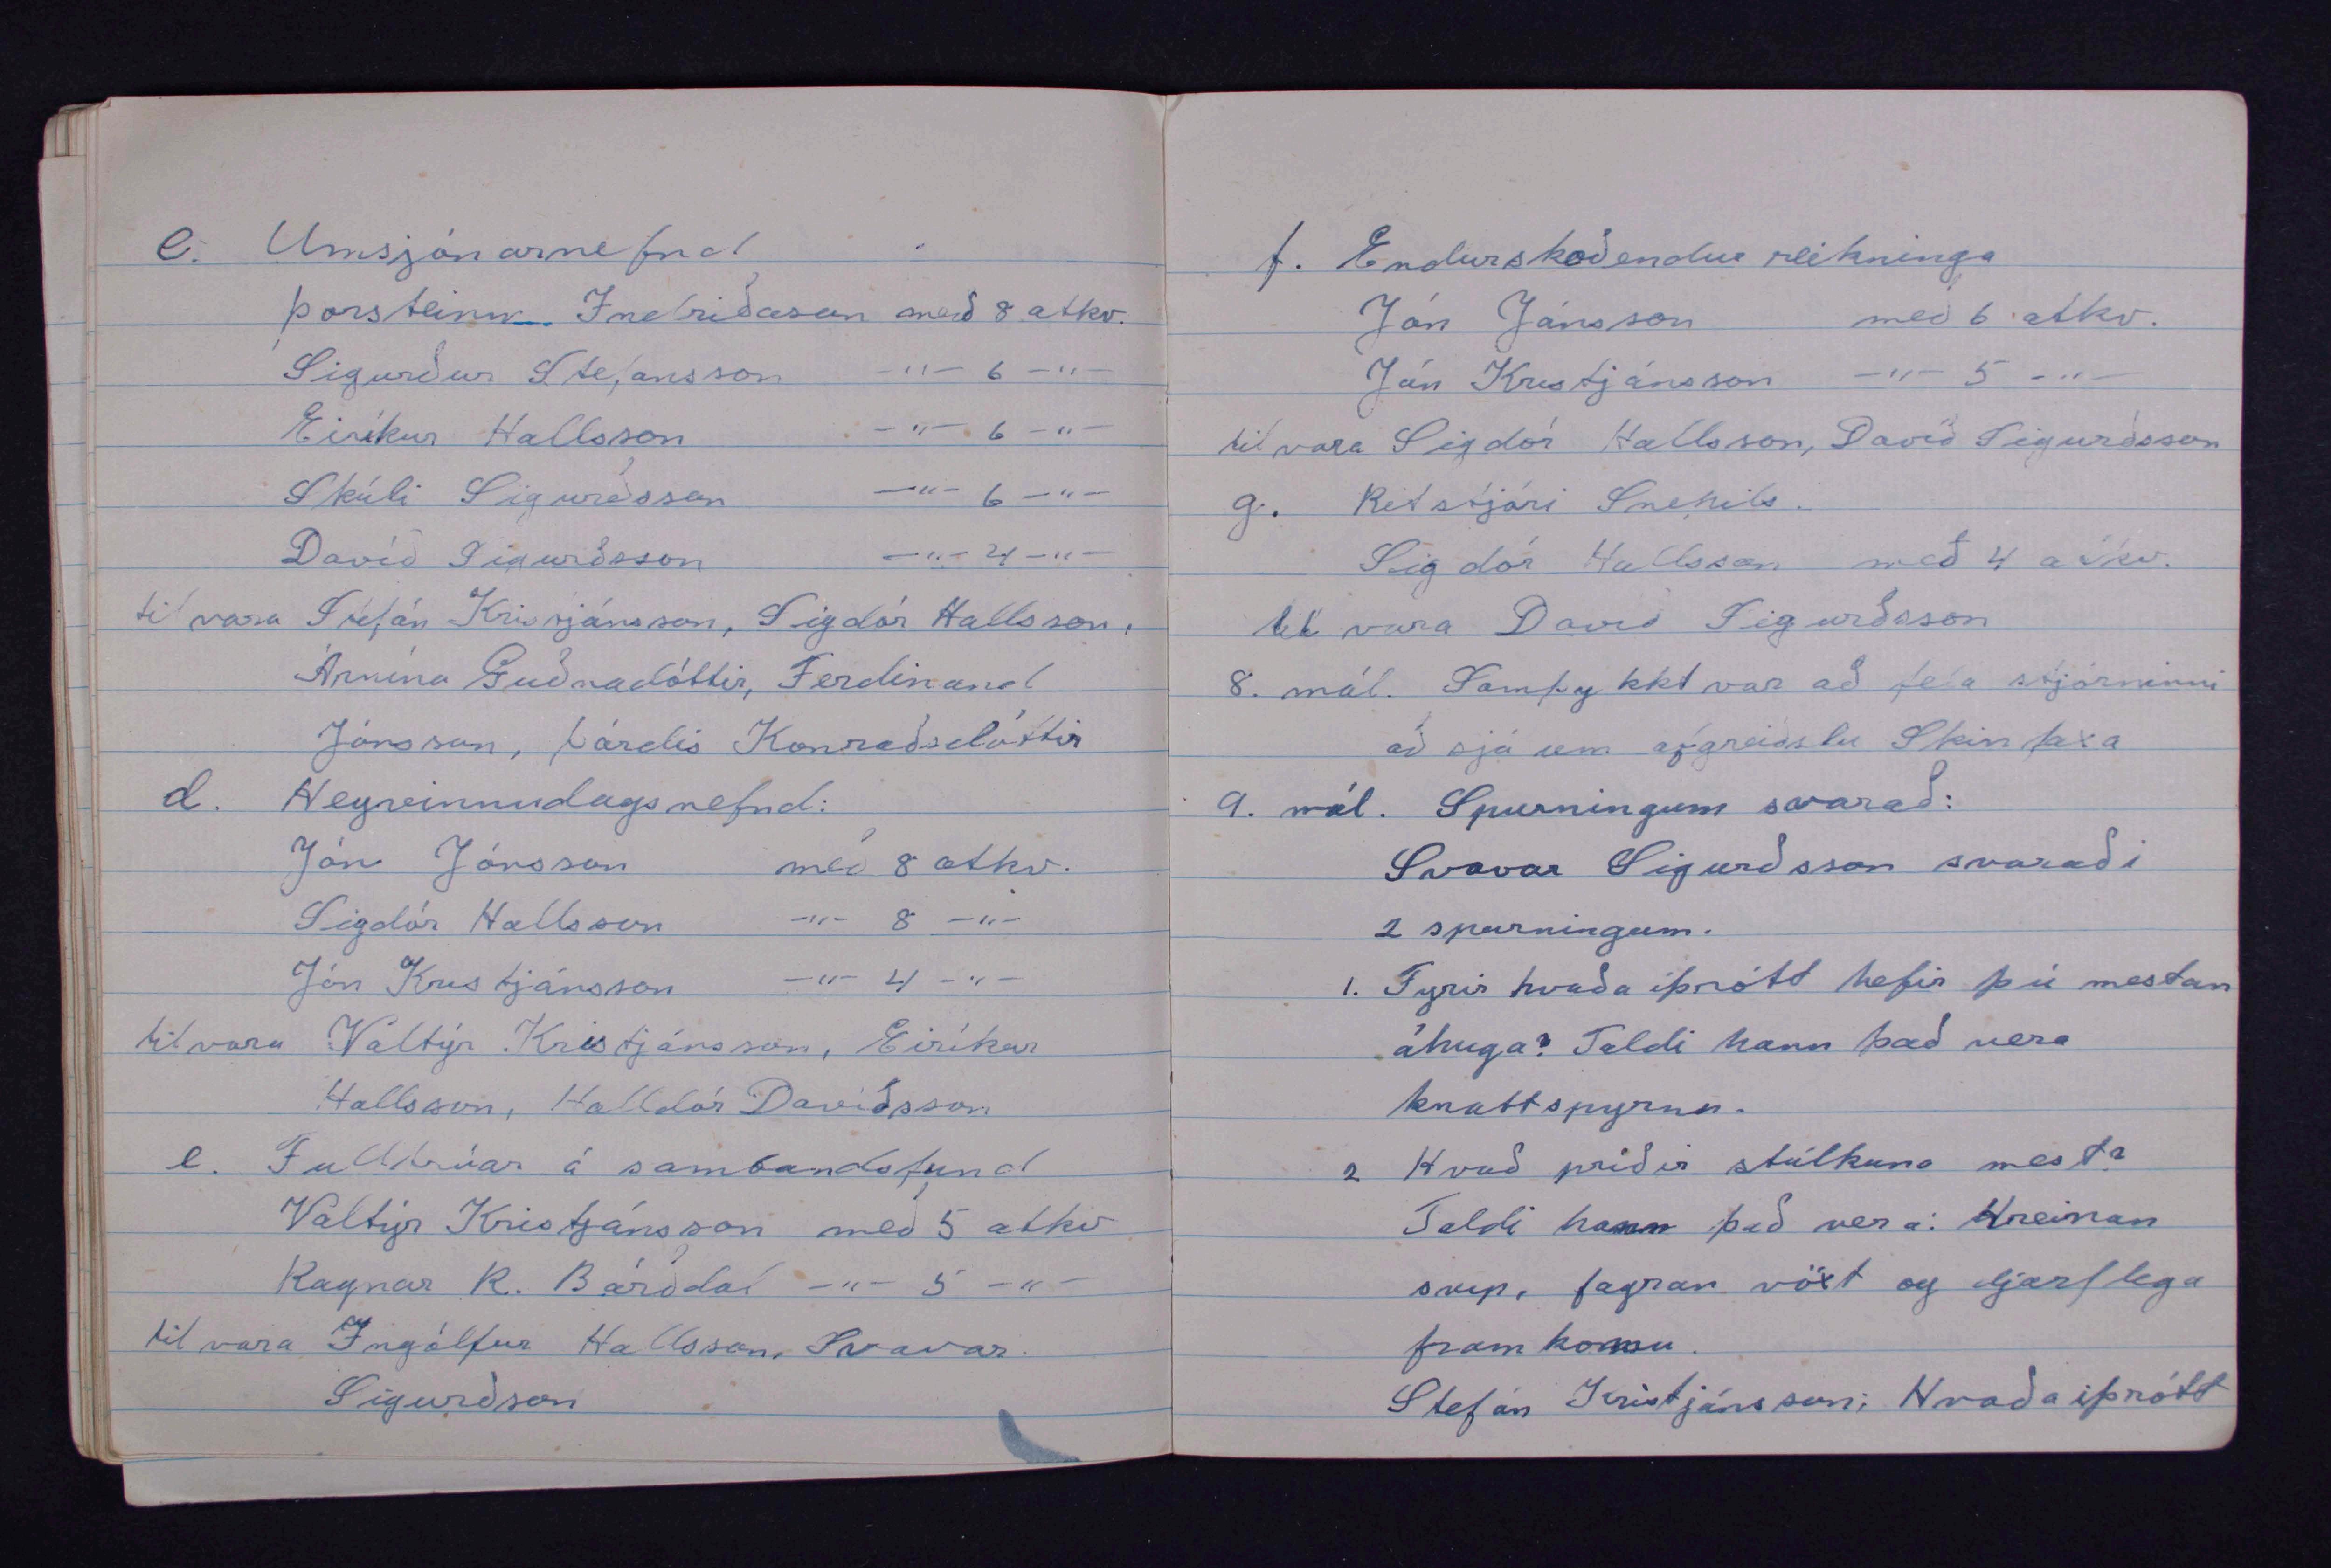 C. Umsjónarnefnd
Þorsteinn Indriðason með 8 atkv.
Sigurður Stefánsson -"- 6 -"-
Eiríkur Hallsson -"- 6 -"-
Skúli Sigurðsson -"- 6 -"-
Davíð Sigurðsson -"- 4 -"-
til vara Stefán Kristjánsson, Sigdór Hallsson,
Árnína Guðnadóttir, Ferdinand
Jónsson, Þórdís Konraðsdóttir
d. Heyvinnudagsnefnd:
Jón Jónsson með 8 atkv.
Sigdór Hallsson -"- 8 -"-
Jón Kristjánsson -"- 4 -"-
til vara Valtýr Kristjánsson, Eiríkur
Hallsson, Halldór Davíðsson
e. Fulltrúar á sambandsfund
Valtýr Kristjánsson með 5 atkv
Ragnar R. Bárðdal -"- 5 -"-
til vara Ingólfur Hallsson, Svavar
Sigurðson
f. Endurskoðendur reikninga
Jón Jónsson með 6 atkv.
Jón Kristjánsson -"- 5 -"-
til vara Sigdór Hallsson, Davíð Sigurðsson
g. Ritstjóri Snepils.
Sigdór Hallsson með 4 atkv.
til vara Davíð Sigurðsson
8. mál. Samþykkt var að fela stjórninni
að sjá um afgreiðslu Skinfaxa
9. mál. Spurningum svarað:
Svavar Sigurðsson svaraði
2 spurningum.
1. Fyrir hvaða íþrótt hefir þú mestan
áhuga? Taldi hann það vera
knattspyrnu.
2 Hvað príðir stúlkuna mest?
Taldi hann það vera: Hreinan
svip, fagran vöxt og djarflega
framkomu.
Stefán Kristjánsson; Hvaða íþrótt